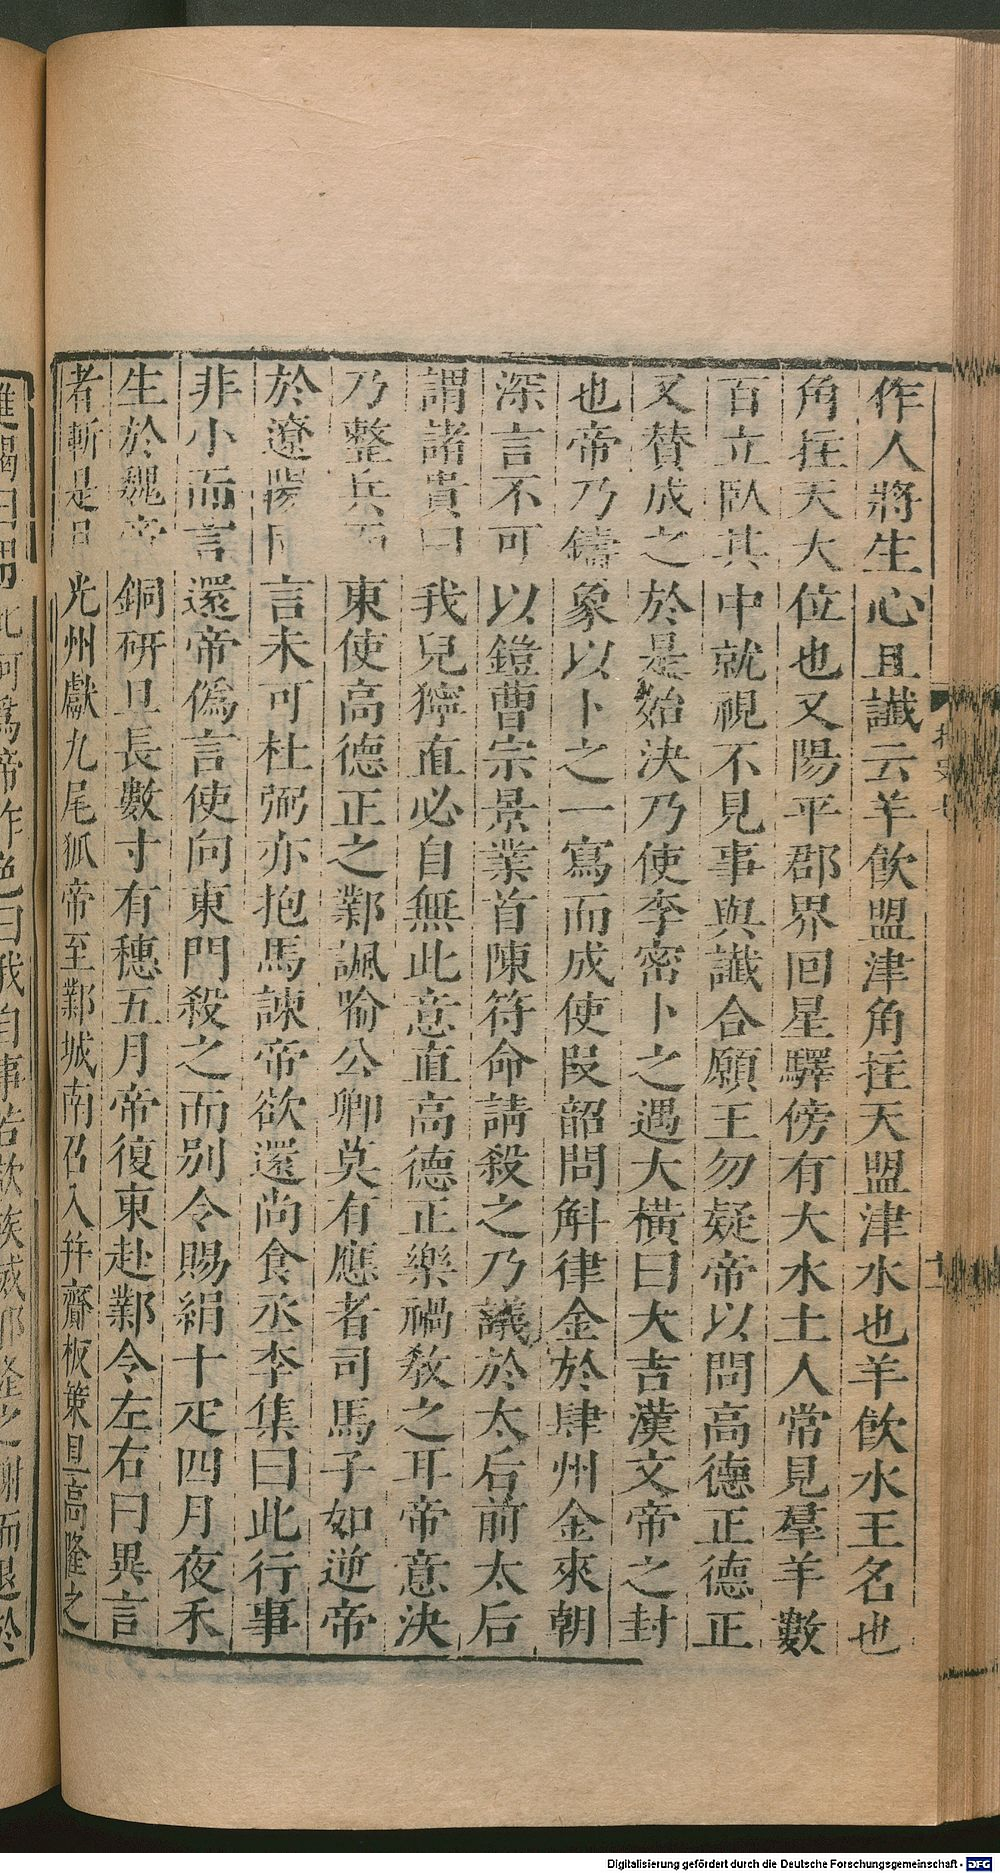 作人將生心且讖云羊飲盟津角拄天盟津水也羊飲水王名也
角拄天大位也又陽平郡界回星驛傍有大水土人常見羣羊數
百立臥其中就視不見事與讖合願王勿疑帝以問高德正德正
又賛成之於是始決乃使李密卜之遇大橫曰大吉漢文帝之封
也帝乃鑄象以卜之一寫而成使叚韶問斛律金於肆州金來朝
深言不可以鎧曹宗景業首陳符命請殺之乃議於太后前太后
謂諸貴曰我兒獰直必自無此意直高德正樂禍教之耳帝意決
乃整兵而東使高德正之鄴諷喻公卿莫有應者司馬子如逆帝
於遼陽固言未可杜弼亦抱馬諫帝欲還尚食丞李集曰此行事
非小而言還帝偽言使向東門殺之而別令賜絹十疋四月夜禾
生於魏帝銅研旦長數寸有穗五月帝復東赴鄴令左右曰異言
者斬是日光州獻九尾狐帝至鄴城南召入并齎板策旦高隆之
進謁曰
北史七
十一
Digitalisierung gefördert durch die Deutsche Forschungsgemeinschaft - DFG